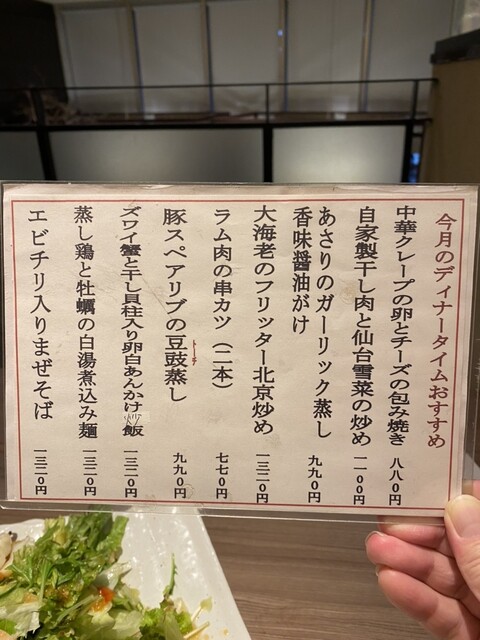 今月のディナータイムおすすめ
中華クレープの卵とチーズの包み焼き 八八〇円
自家製干し肉と仙台雪菜の炒め 一一〇〇円
あさりのガーリック蒸し
香味醤油がけ 九九〇円
大海老のフリッター北京炒め 一三二〇円
ラム肉の串カツ（二本） 七七〇円
豚スペアリブの豆豉蒸し 九九〇円
トーチ
ズワイ蟹と干し貝柱入り卵白あんかけ炒飯 一三二〇円
蒸し鶏と牡蠣の白湯煮込み麺 一三二〇円
エビチリ入りまぜそば 一三二〇円